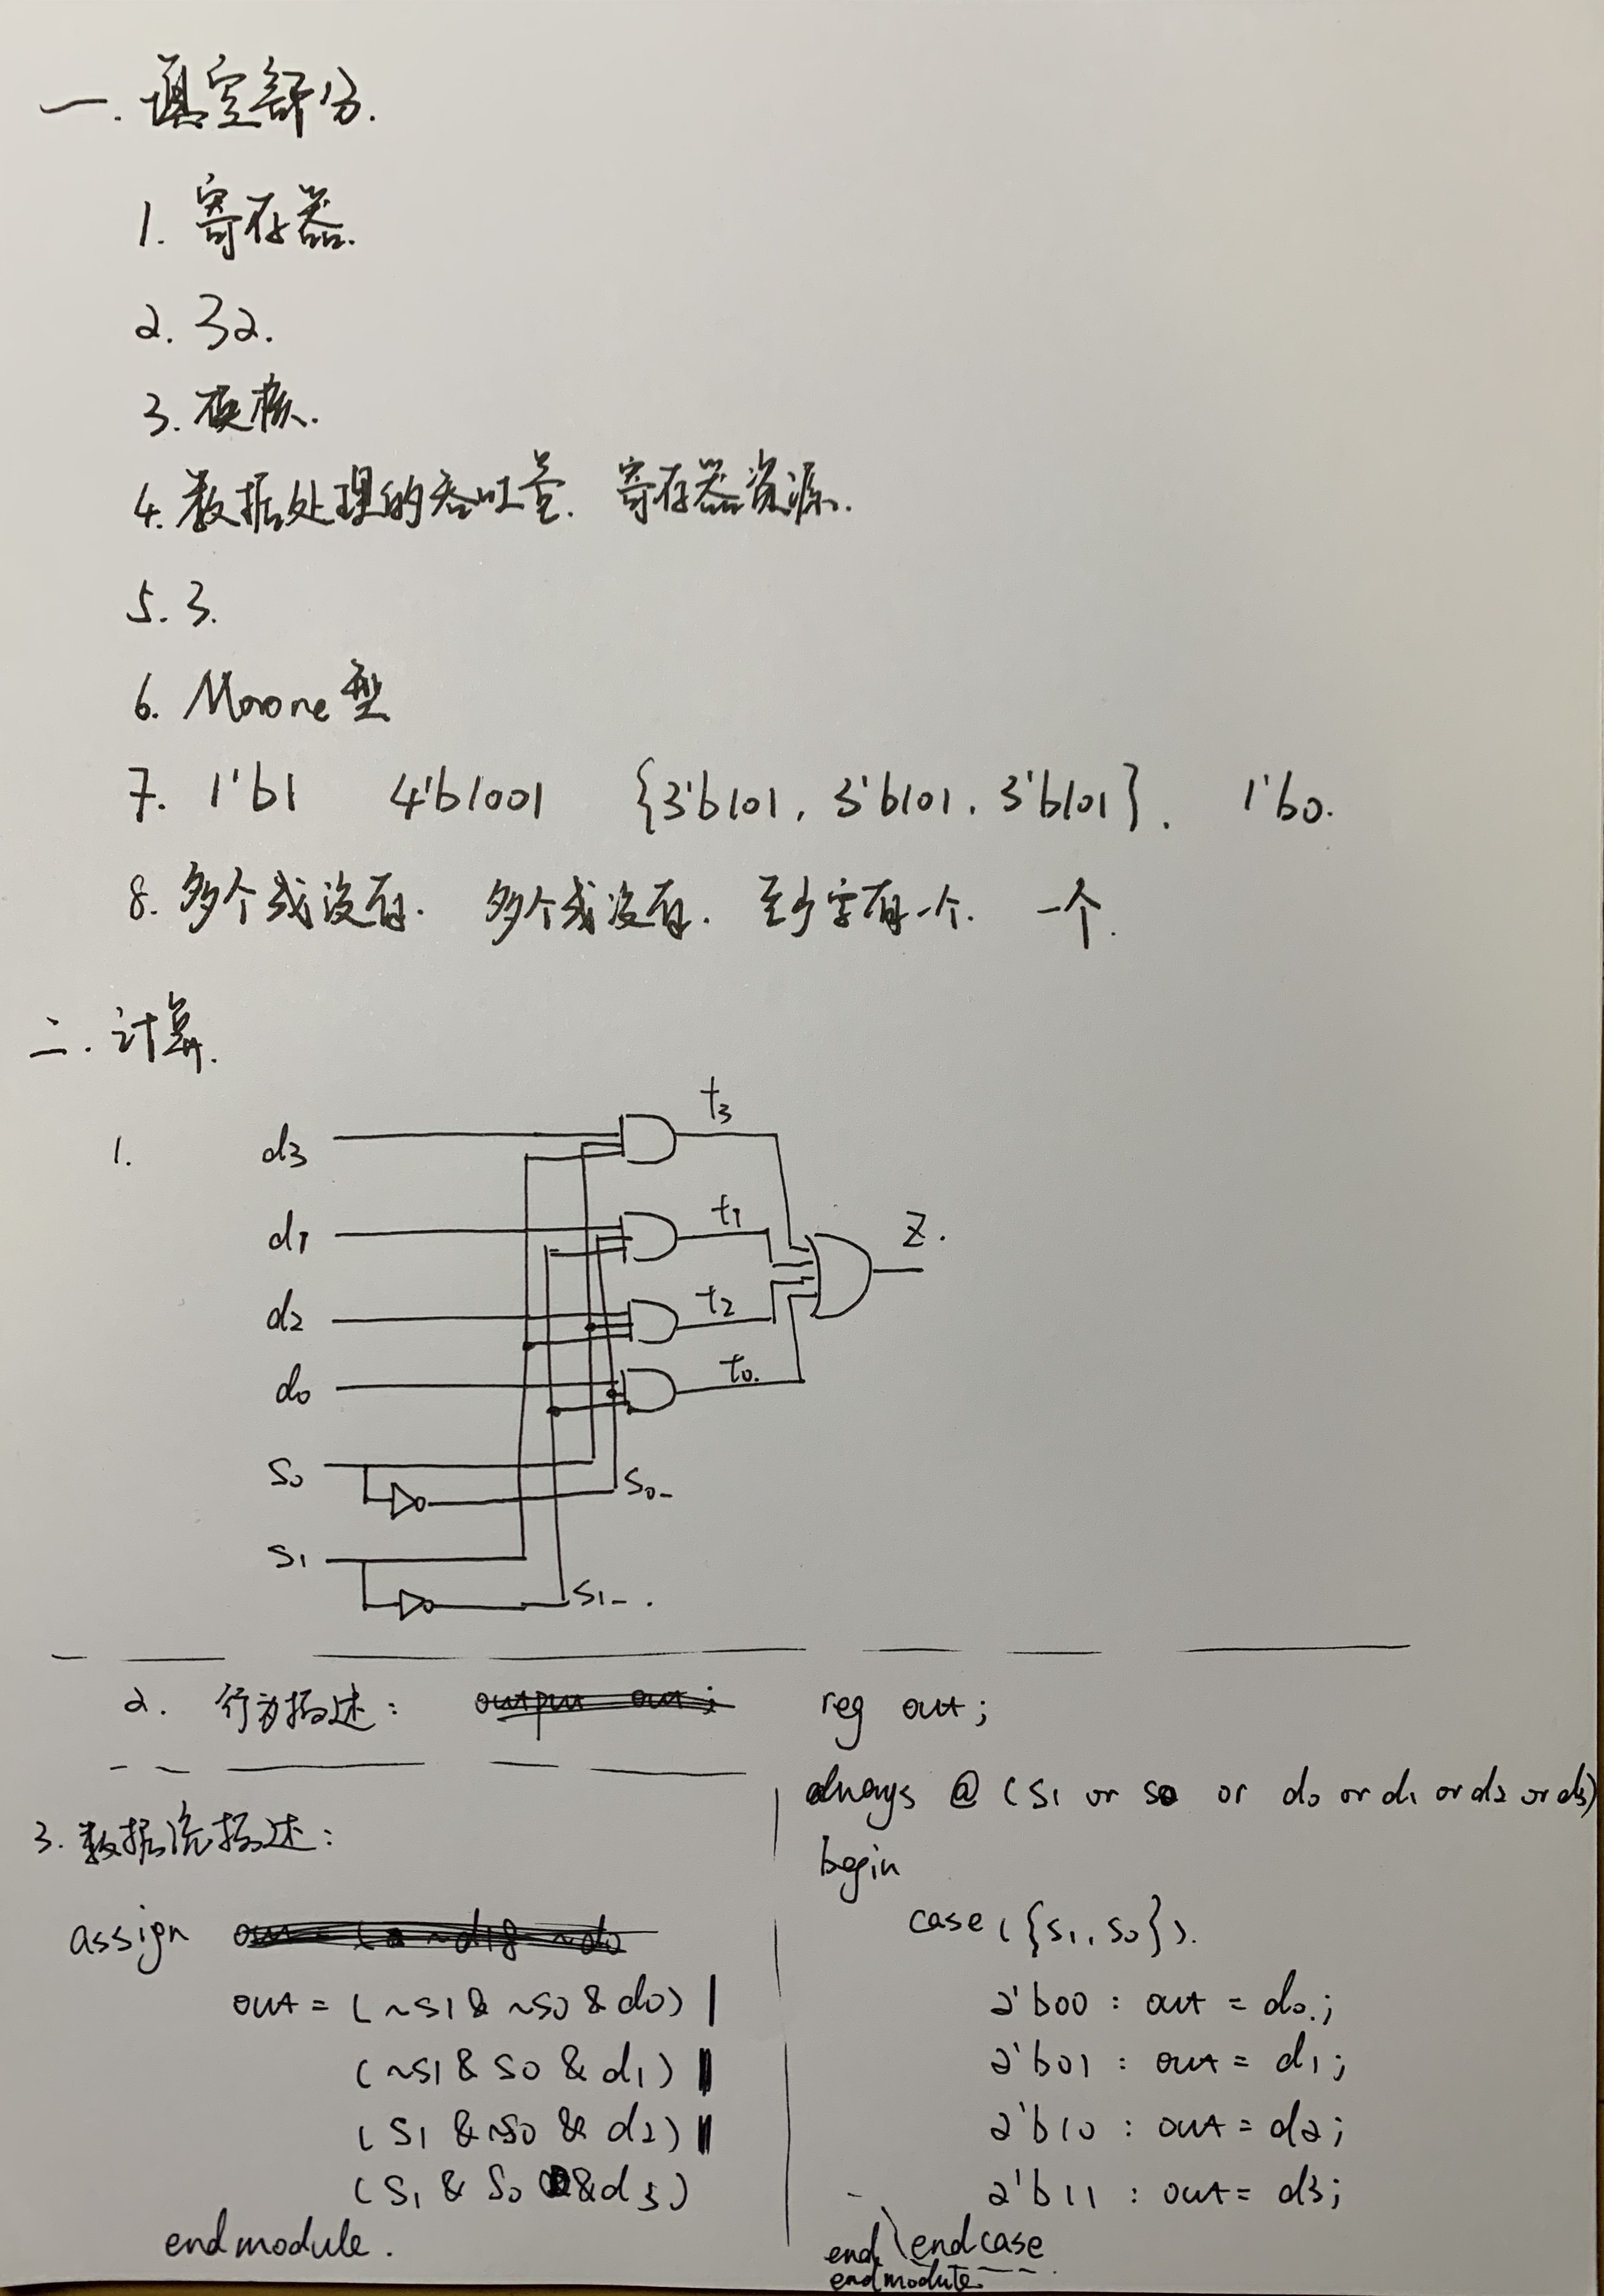 一. 填空部分.
1. 寄存器.
2. 32.
3. 硬核.
4. 数据处理的吞吐量. 寄存器资源.
5. 3.
6. Moone型
7. 1'b1 4'b1001 {3'b101, 3'b101, 3'b101}. 1'b0.
8. 多个或没有. 多个或没有. 至少字有一个. 一个.
二. 计算.
1.
d3 t3
d1 t1 Z.
d2 t2
d0 t0.
S0 S0_
S1 S1_.
2. 行为描述: reg out;
always @ (S1 or S0 or d0 or d1 or d2 or d3)
begin
case ({S1, S0}).
2'b00 : out = d0.;
2'b01 : out = d1;
2'b10 : out = d2;
2'b11 : out = d3;
end endcase
endmodule.
3. 数据流描述:
assign
out = (~S1 & ~S0 & d0) |
(~S1 & S0 & d1) |
(S1 & ~S0 & d2) |
(S1 & S0 & d3)
endmodule.